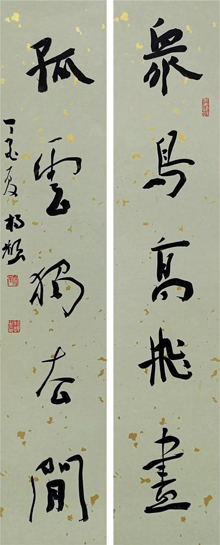 衆鳥高飛盡
孤雲獨去閒
丁亥夏